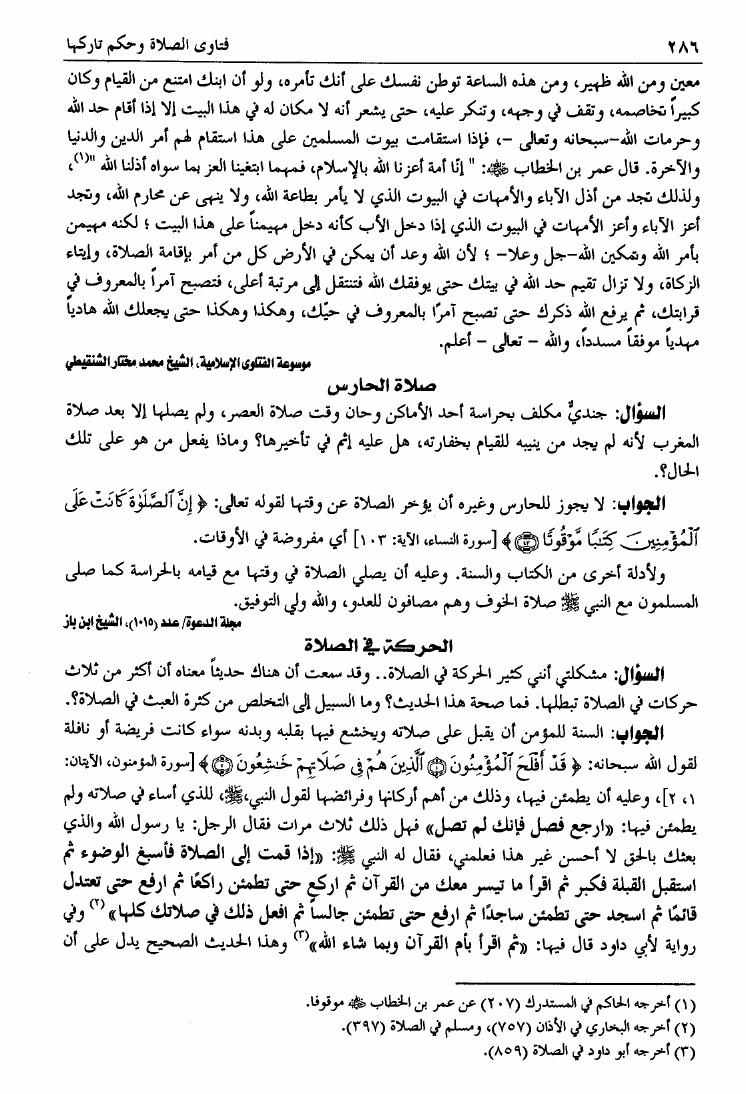 ٢٨٦
فتاوى الصلاة وحكم تاركها
معين ومن الله ظهير، ومن هذه الساعة توطن نفسك على أنك تأمره، ولو أن ابنك امتنع من القيام وكان
كبيراً تخاصمه، وتقف في وجهه، وتنكر عليه، حتى يشعر أنه لا مكان له في هذا البيت إلا إذا أقام حد الله
وحرمات الله-سبحانه وتعالى -، فإذا استقامت بيوت المسلمين على هذا استقام لهم أمر الدين والدنيا
والآخرة. قال عمر بن الخطاب ﷺ: " إنّا أمة أعزنا الله بالإسلام، فمهما ابتغينا العز بما سواه أذلنا الله "(١)،
ولذلك تجد من أذل الآباء والأمهات في البيوت الذي لا يأمر بطاعة الله، ولا ينهى عن محارم الله، وتجد
أعز الآباء وأعز الأمهات في البيوت الذي إذا دخل الأب كأنه دخل مهيمناً على هذا البيت ؛ لكنه مهيمن
بأمر الله وتمكين الله-جل وعلا- ؛ لأن الله وعد أن يمكن في الأرض كل من أمر بإقامة الصلاة، وإيتاء
الزكاة، ولا تزال تقيم حد الله في بيتك حتى يوفقك الله فتنتقل إلى مرتبة أعلى، فتصبح آمراً بالمعروف في
قرابتك، ثم يرفع الله ذكرك حتى تصبح آمرًا بالمعروف في حيّك، وهكذا وهكذا حتى يجعلك الله هادياً
مهدياً موفقاً مسدداً، والله - تعالى - أعلم.
موسوعة الفتاوى الإسلامية، الشيخ محمد مختار الشنقيطي
صلاة الحارس
السؤال: جنديٌّ مكلف بحراسة أحد الأماكن وحان وقت صلاة العصر، ولم يصلها إلا بعد صلاة
المغرب لأنه لم يجد من ينيبه للقيام بخفارته، هل عليه إثم في تأخيرها؟ وماذا يفعل من هو على تلك
الحال؟.
الجواب: لا يجوز للحارس وغيره أن يؤخر الصلاة عن وقتها لقوله تعالى: ﴿ إِنَّ ٱلصَّلَوٰةَ كَانَتْ عَلَى
ٱلْمُؤْمِنِينَ كِتَٰبًا مَّوْقُوتًا ﴿١٠٣﴾ ﴾ [سورة النساء، الآية: ١٠٣] أي مفروضة في الأوقات.
ولأدلة أخرى من الكتاب والسنة. وعليه أن يصلي الصلاة في وقتها مع قيامه بالحراسة كما صلى
المسلمون مع النبي ﷺ صلاة الخوف وهم مصافون للعدو، والله ولي التوفيق.
مجلة الدعوة/ عدد (١٠١٥)، الشيخ ابن باز
الحركة في الصلاة
السؤال: مشكلتي أنني كثير الحركة في الصلاة.. وقد سمعت أن هناك حديثاً معناه أن أكثر من ثلاث
حركات في الصلاة تبطلها. فما صحة هذا الحديث؟ وما السبيل إلى التخلص من كثرة العبث في الصلاة؟.
الجواب: السنة للمؤمن أن يقبل على صلاته ويخشع فيها بقلبه وبدنه سواء كانت فريضة أو نافلة
لقول الله سبحانه: ﴿ قَدْ أَفْلَحَ ٱلْمُؤْمِنُونَ ﴿١﴾ ٱلَّذِينَ هُمْ فِى صَلَاتِهِمْ خَٰشِعُونَ ﴿٢﴾ ﴾ [سورة المؤمنون، الآيتان:
١، ٢]، وعليه أن يطمئن فيها، وذلك من أهم أركانها وفرائضها لقول النبي،ﷺ، للذي أساء في صلاته ولم
يطمئن فيها: «ارجع فصل فإنك لم تصل» فهل ذلك ثلاث مرات فقال الرجل: يا رسول الله والذي
بعثك بالحق لا أحسن غير هذا فعلمني، فقال له النبي ﷺ: «إذا قمت إلى الصلاة فأسبغ الوضوء ثم
استقبل القبلة فكبر ثم اقرأ ما تيسر معك من القرآن ثم اركع حتى تطمئن راكعًا ثم ارفع حتى تعتدل
قائمًا ثم اسجد حتى تطمئن ساجدًا ثم ارفع حتى تطمئن جالساً ثم افعل ذلك في صلاتك كلها» (٢) وفي
رواية لأبي داود قال فيها: «ثم اقرأ بأم القرآن وبما شاء الله»(٣) وهذا الحديث الصحيح يدل على أن
(١) أخرجه الحاكم في المستدرك (٢٠٧) عن عمر بن الخطاب ﷺ موقوفا.
(٢) أخرجه البخاري في الأذان (٧٥٧)، ومسلم في الصلاة (٣٩٧).
(٣) أخرجه أبو داود في الصلاة (٨٥٩).